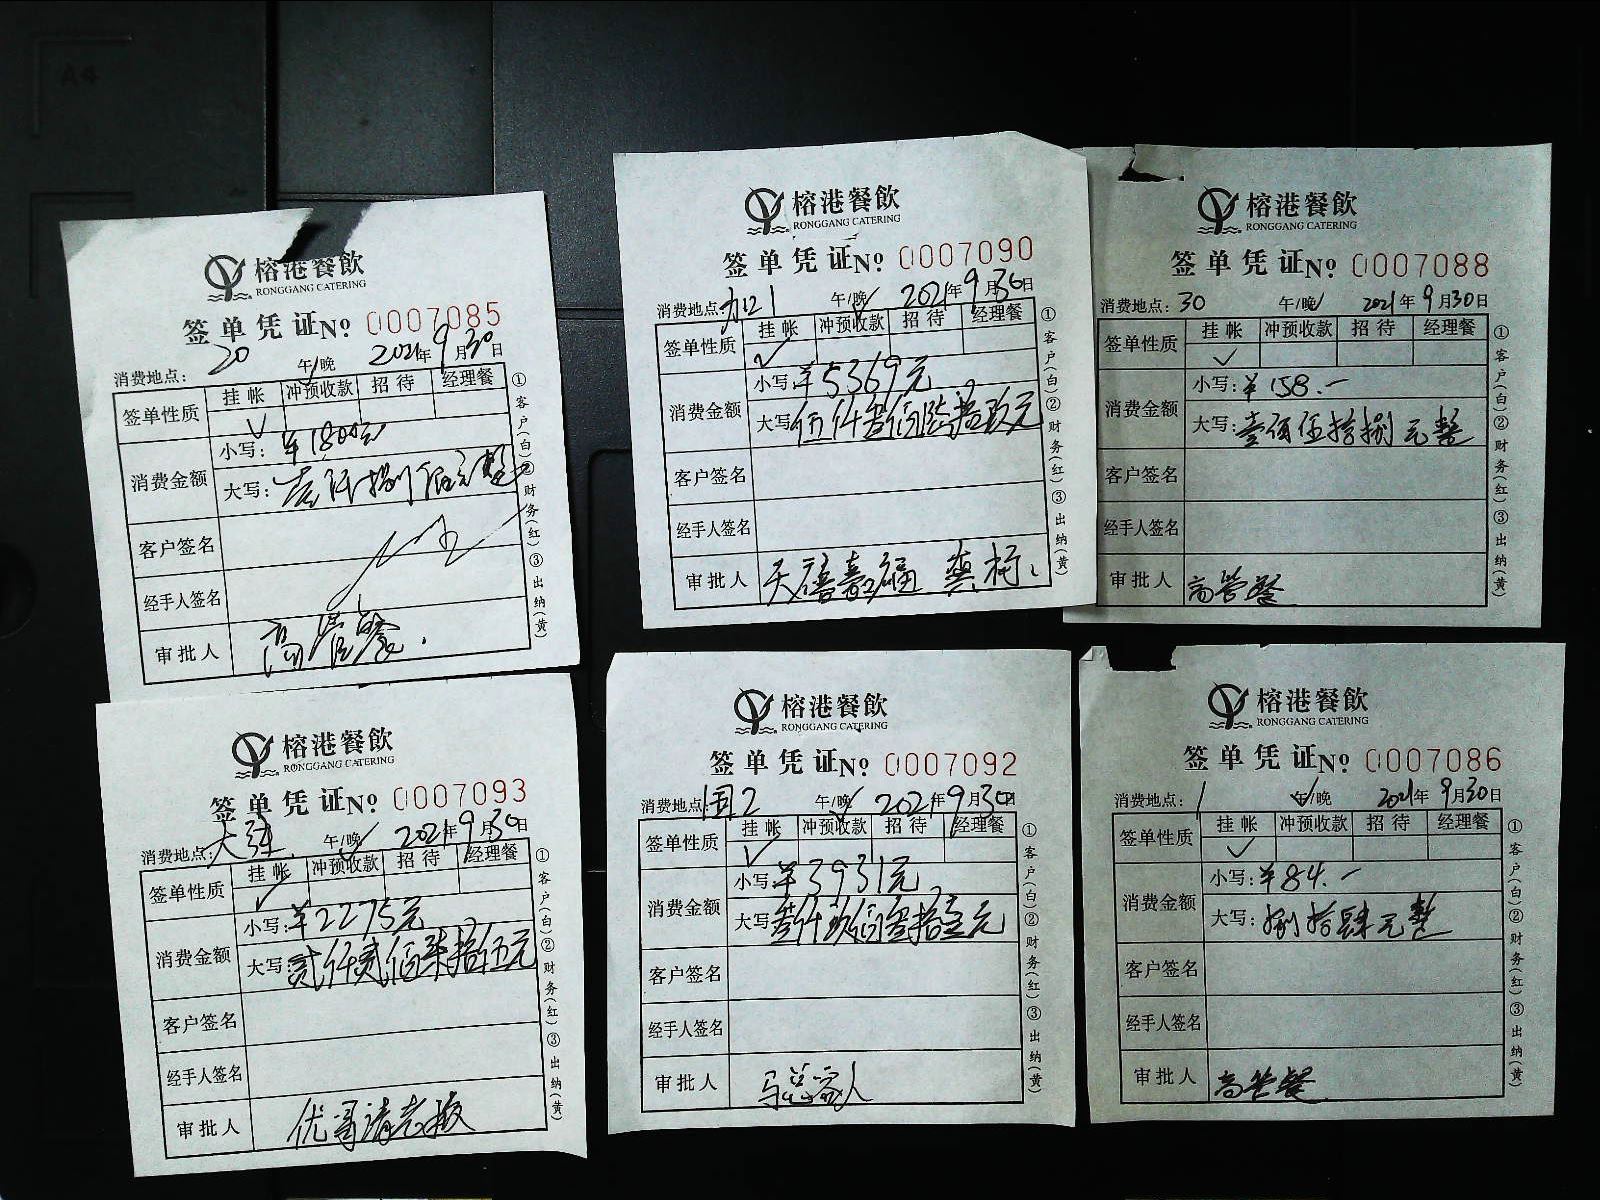 榕港餐飲
RONGGANG CATERING
签单凭证№ 0007085
消费地点: 20 午/晚 2021年9月30日
签单性质 挂帐 冲预收款 招待 经理餐
✓
消费金额 小写: ¥1800元
大写: 壹仟捌佰元整
客户签名
经手人签名
审批人 高管餐.
①客户(白)②财务(红)③出纳(黄)
榕港餐飲
RONGGANG CATERING
签单凭证№ 0007090
消费地点: 1 午/晚 2021年9月30日
签单性质 挂帐 冲预收款 招待 经理餐
✓
消费金额 小写: ¥5369元
大写: 伍仟叁佰陆拾玖元
客户签名
经手人签名
审批人 天禧嘉福
①客户(白)②财务(红)③出纳(黄)
榕港餐飲
RONGGANG CATERING
签单凭证№ 0007088
消费地点: 30 午/晚 2021年9月30日
签单性质 挂帐 冲预收款 招待 经理餐
✓
消费金额 小写: ¥158.-
大写: 壹佰伍拾捌元整
客户签名
经手人签名
审批人 高管餐
①客户(白)②财务(红)③出纳(黄)
榕港餐飲
RONGGANG CATERING
签单凭证№ 0007093
消费地点: 大 午/晚 2021年9月30日
签单性质 挂帐 冲预收款 招待 经理餐
✓
消费金额 小写: ¥2275元
大写: 贰仟贰佰柒拾伍元
客户签名
经手人签名
审批人 优哥请老板
①客户(白)②财务(红)③出纳(黄)
榕港餐飲
RONGGANG CATERING
签单凭证№ 0007092
消费地点: 国2 午/晚 2021年9月30日
签单性质 挂帐 冲预收款 招待 经理餐
✓
消费金额 小写: ¥3931元
大写: 叁仟玖佰叁拾壹元
客户签名
经手人签名
审批人 马总客人
①客户(白)②财务(红)③出纳(黄)
榕港餐飲
RONGGANG CATERING
签单凭证№ 0007086
消费地点: 1 午/晚 2021年9月30日
签单性质 挂帐 冲预收款 招待 经理餐
✓
消费金额 小写: ¥84.-
大写: 捌拾肆元整
客户签名
经手人签名
审批人 高管餐
①客户(白)②财务(红)③出纳(黄)
A4